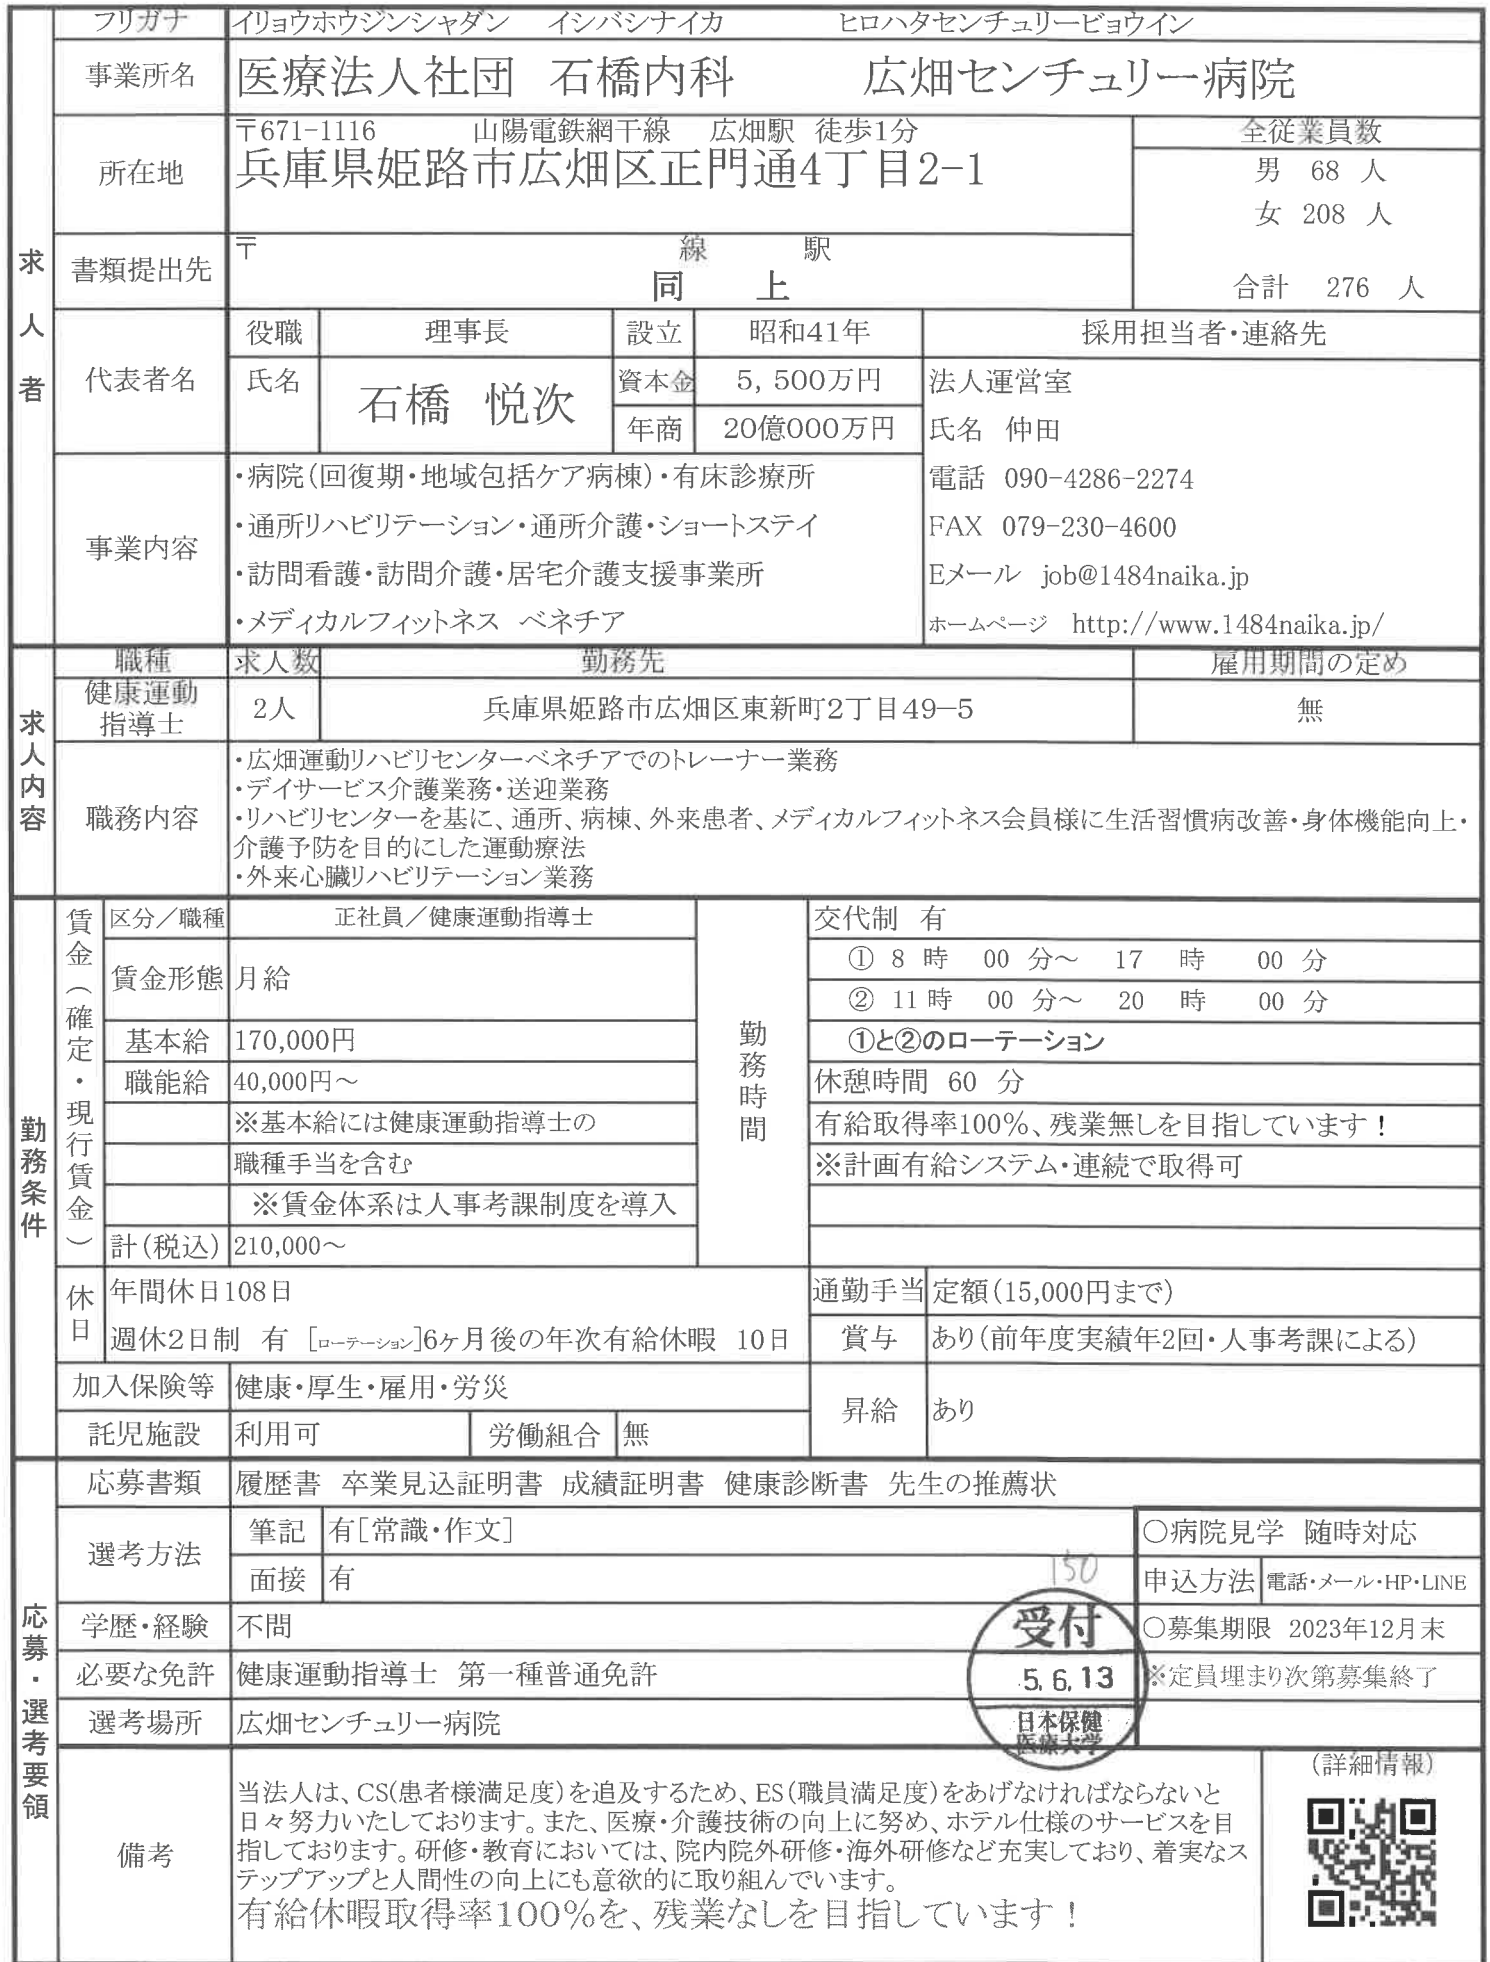 フリガナ イリョウホウジンシャダン イシバシナイカ ヒロハタセンチュリービョウイン
求人者
事業所名 医療法人社団 石橋内科 広畑センチュリー病院
所在地 〒671-1116 山陽電鉄網干線 広畑駅 徒歩1分
兵庫県姫路市広畑区正門通4丁目2-1
全従業員数
男 68 人
女 208 人
合計 276 人
書類提出先 〒 線 駅
同 上
代表者名 役職 理事長 設立 昭和41年 採用担当者・連絡先
氏名 石橋 悦次 資本金 5,500万円
年商 20億000万円
法人運営室
氏名 仲田
電話 090-4286-2274
FAX 079-230-4600
Eメール job@1484naika.jp
ホームページ http://www.1484naika.jp/
事業内容
・病院(回復期・地域包括ケア病棟)・有床診療所
・通所リハビリテーション・通所介護・ショートステイ
・訪問看護・訪問介護・居宅介護支援事業所
・メディカルフィットネス ベネチア
求人内容
職種 求人数 勤務先 雇用期間の定め
健康運動指導士 2人 兵庫県姫路市広畑区東新町2丁目49-5 無
職務内容
・広畑運動リハビリセンターベネチアでのトレーナー業務
・デイサービス介護業務・送迎業務
・リハビリセンターを基に、通所、病棟、外来患者、メディカルフィットネス会員様に生活習慣病改善・身体機能向上・
介護予防を目的にした運動療法
・外来心臓リハビリテーション業務
勤務条件
賃金(確定・現行賃金)
区分/職種 正社員/健康運動指導士
賃金形態 月給
基本給 170,000円
職能給 40,000円~
※基本給には健康運動指導士の
職種手当を含む
※賃金体系は人事考課制度を導入
計(税込) 210,000~
勤務時間
交代制 有
① 8 時 00 分~ 17 時 00 分
② 11 時 00 分~ 20 時 00 分
①と②のローテーション
休憩時間 60 分
有給取得率100%、残業無しを目指しています!
※計画有給システム・連続で取得可
休日
年間休日108日
週休2日制 有 [ローテーション]6ヶ月後の年次有給休暇 10日
通勤手当 定額(15,000円まで)
賞与 あり(前年度実績年2回・人事考課による)
加入保険等 健康・厚生・雇用・労災
昇給 あり
託児施設 利用可 労働組合 無
応募・選考要領
応募書類 履歴書 卒業見込証明書 成績証明書 健康診断書 先生の推薦状
選考方法 筆記 有[常識・作文]
面接 有
150
○病院見学 随時対応
申込方法 電話・メール・HP・LINE
学歴・経験 不問
○募集期限 2023年12月末
必要な免許 健康運動指導士 第一種普通免許
※定員埋まり次第募集終了
選考場所 広畑センチュリー病院
受付
5.6.13
日本保健
医療大学
備考
当法人は、CS(患者様満足度)を追及するため、ES(職員満足度)をあげなければならないと
日々努力いたしております。また、医療・介護技術の向上に努め、ホテル仕様のサービスを目
指しております。研修・教育においては、院内院外研修・海外研修など充実しており、着実なス
テップアップと人間性の向上にも意欲的に取り組んでいます。
有給休暇取得率100%を、残業なしを目指しています!
(詳細情報)